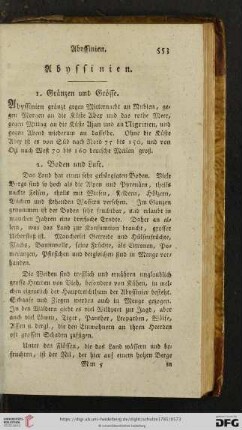 Abyssinien. 553
Abyssinien.
1. Gränzen und Grösse.
Abyssinien gränzt gegen Mitternacht an Nubien, ge-
gen Morgen an die Küste Abex und das rothe Meer,
gegen Mittag an die Küste Ajan und an Nigritien, und
gegen Abend wiederum an dasselbe. Ohne die Küste
Abex ist es von Süd nach Nord 75 bis 150, und von
Ost nach West 70 bis 160 deutsche Meilen groß.
2. Boden und Luft.
Das Land hat einen sehr gebürgigten Boden. Viele
Berge sind so hoch als die Alpen und Pyrenäen, theils
nackte Felsen, theils mit Aeckern, Hölzern,
Büschen und stehenden Wassern versehen. Im Ganzen
genommen ist der Boden sehr fruchtbar, und erlaubt in
manchen Jahren eine dreyfache Erndte. Daher an al-
lem, was das Land zur Nahrung braucht, grosser
Ueberfluß ist. Mancherlei Getreide und Hülsenfrüchte,
Flachs, Baumwolle, feine Früchte, als Citronen, Po-
meranzen, Pfirschen und dergleichen sind in Menge vor-
handen.
Die Weiden sind trefflich und ernähren unglaublich
grosse Heerden von Vieh, besonders von Kühen, in wel-
chen eigentlich der Hauptreichthum der Abyssinier besteht.
Schaafe und Ziegen werden auch in Menge gezogen.
In den Wäldern giebt es viel Wildpret zur Jagd, aber
auch viel Löwen, Tiger, Panther, Leoparden, Wölfe,
Affen u. dergl., die den Einwohnern an ihren Heerden
oft grossen Schaden zufügen.
Unter den Flüssen, die das Land wässern und be-
fruchten, ist der Nil, der hier auf einem hohen Berge
Mm 5 in